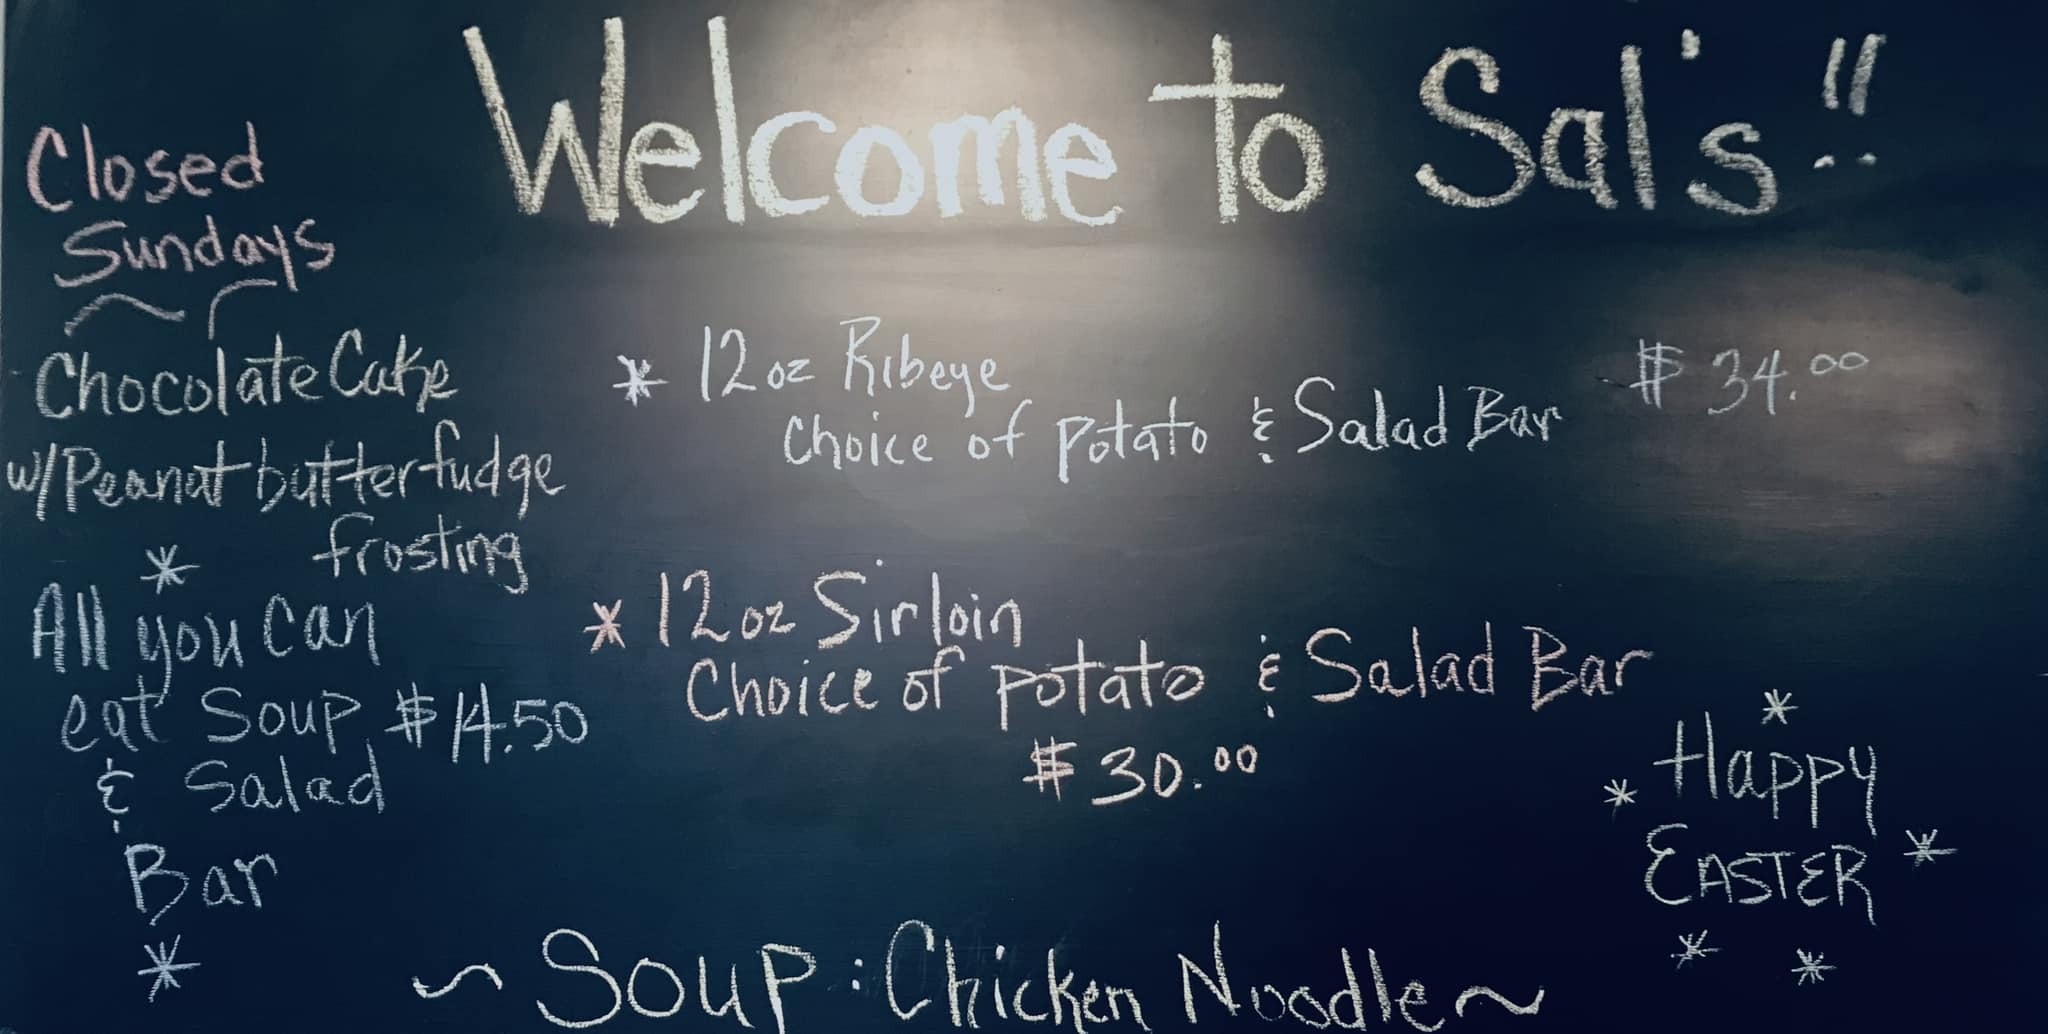 Welcome to Sal's!!
Closed
Sundays
Chocolate Cake
w/Peanut butter fudge
frosting
*
All you can
eat Soup $14.50
& Salad
Bar
*
* 12oz Ribeye
Choice of potato & Salad Bar $34.00
* 12oz Sirloin
Choice of potato & Salad Bar
$30.00
*
* Happy
EASTER *
* *
~ Soup: Chicken Noodle ~